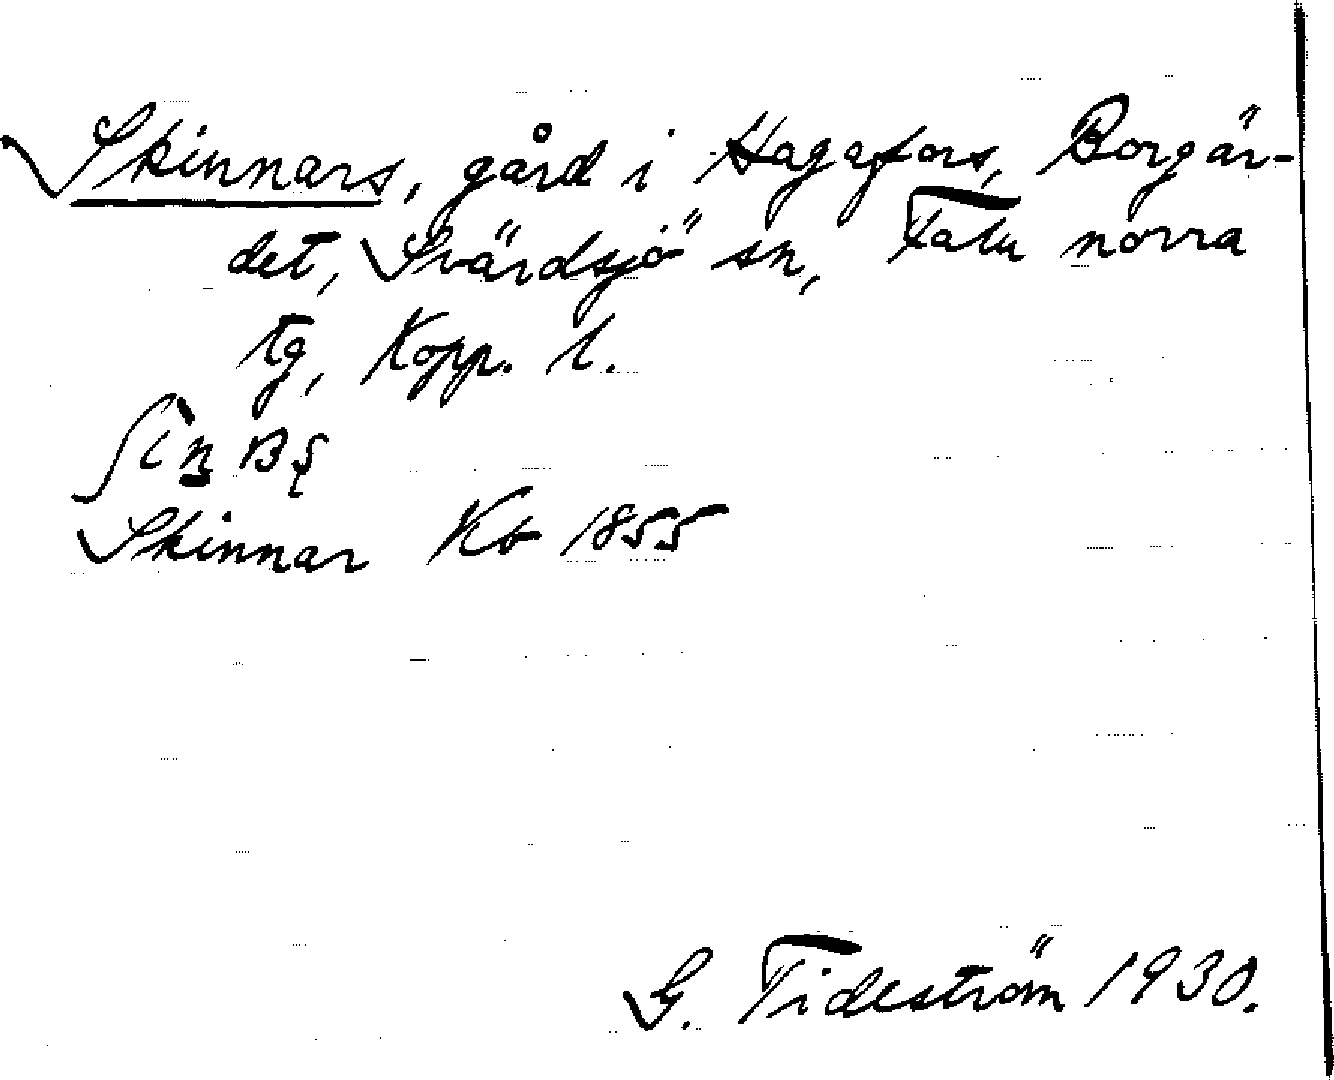 Skinnars, gård i Hagafors, Borgär-
det, Svärdsjö sn, Falu norra
tg, Kopp. l.
Skinnar Kb 1855
G. Tideström 1930.